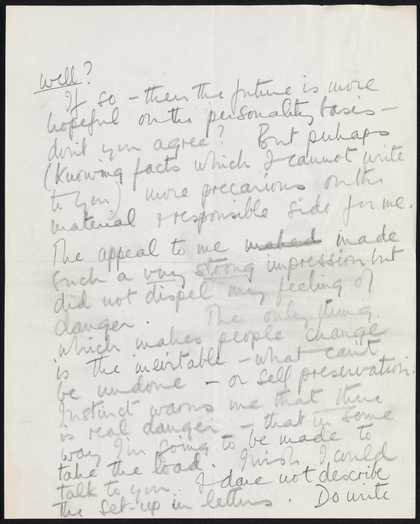 well?
If so – then the future is more
hopeful on the personality basis –
don't you agree? But perhaps
(knowing facts which I cannot write
to you) more precarious on the
material & responsible side for me.
The appeal to me made
such a very strong impression but
did not dispel my feeling of
danger. The only thing
which makes people change
is the inevitable – what can't
be undone – or self preservation.
Instinct warns me that there
is real danger – that in some
way I'm going to be made to
take the load. I wish I could
talk to you. I dare not describe
the set-up in letters. Do write